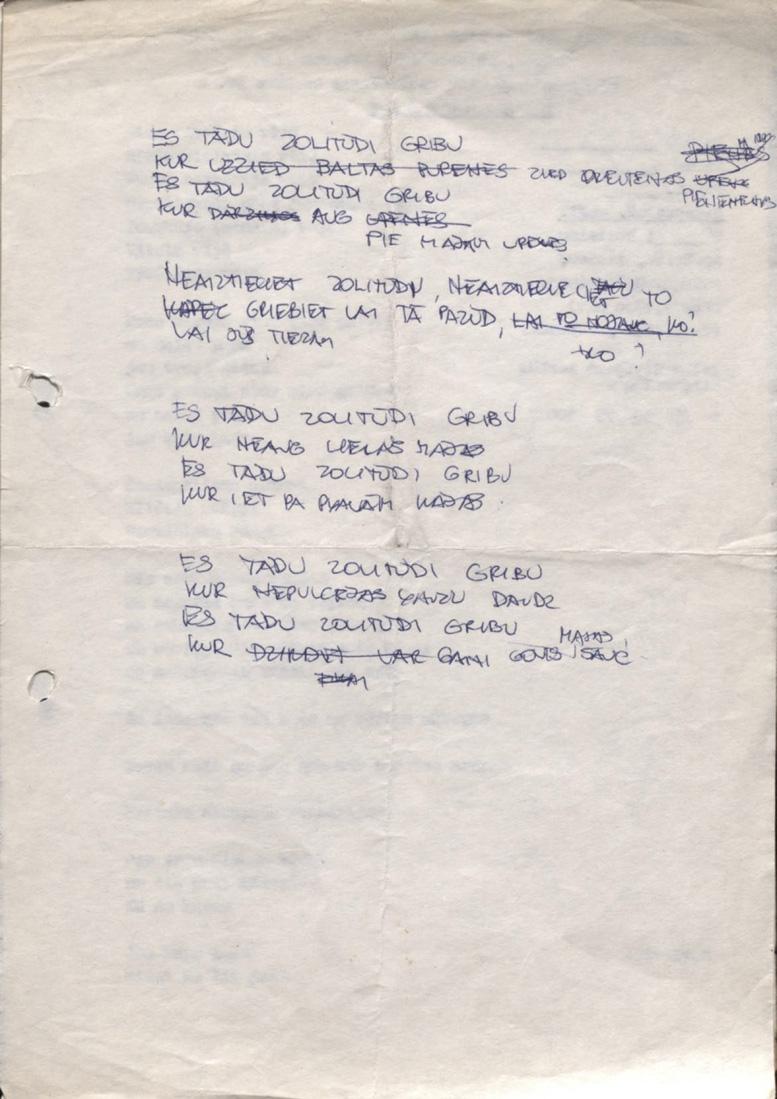 ES TĀDU ZOLITŪDI GRIBU
KUR UZZIED BALTAS PURENES ZIED
PIENENES
ES TĀDU ZOLITŪDI GRIBU
KUR AUG UPENES
PIE MĀJĀM UPENES
NEAIZTIECIET ZOLITŪDI, NEAIZTIECIET TO
KĀPĒC GRIBIET LAI TĀ PAZŪD, LAI TO NOJAUC, KO?
VAI JŪS TIEŠĀM
KO?
ES TĀDU ZOLITŪDI GRIBU
KUR NEAUG LIELAS MĀJAS
ES TĀDU ZOLITŪDI GRIBU
KUR IET PA PĻAVĀM KĀJAS
ES TĀDU ZOLITŪDI GRIBU
KUR NEPULCĒJAS ĻAUŽU DAUDZ
ES TĀDU ZOLITŪDI GRIBU
MĀJĀS
KUR DZIRDĒT VAR GANI GOVIS SAUC